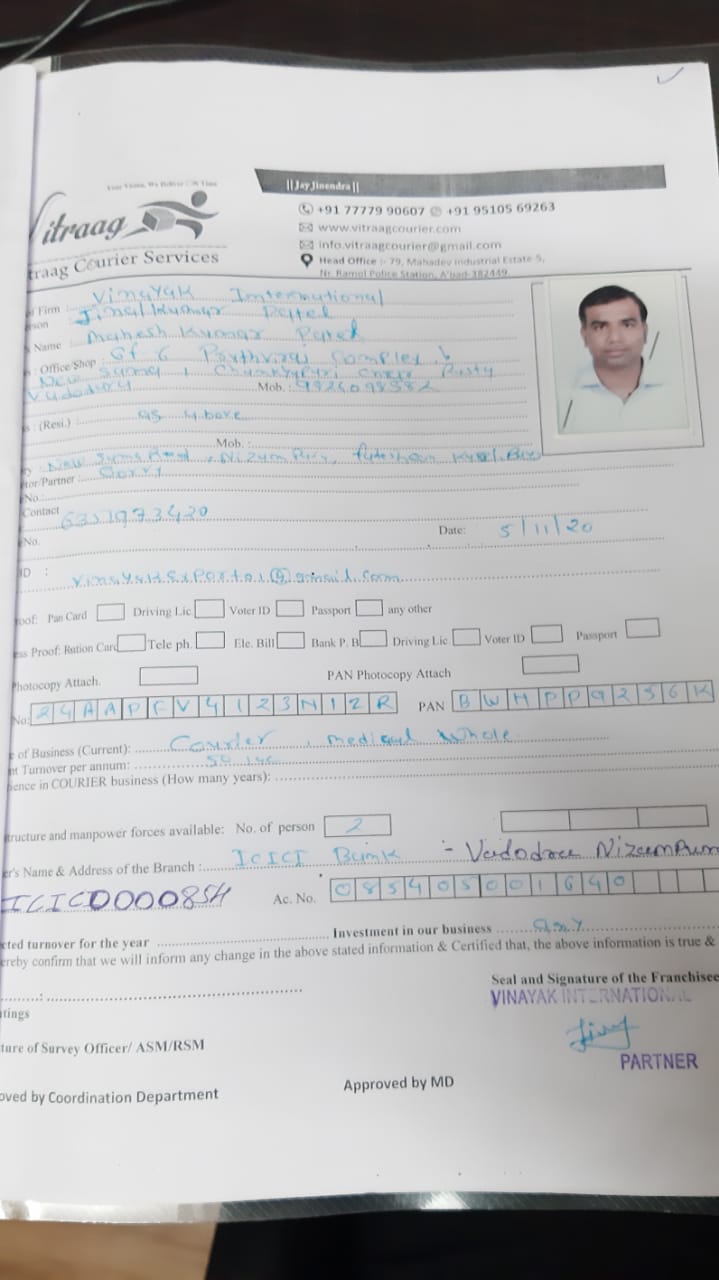 || Jay Jinendra ||
Vitraag
traag Courier Services
+91 77779 90607 +91 95105 69263
www.vitraagcourier.com
info.vitraagcourier@gmail.com
Head Office :- 79, Mahadev Industrial Estate-5,
Nr. Ramol Police Station, A'bad-382449.
of Firm : Vinayak International
rson Jinalkumar Patel
s Name : Mahesh Kumar Patel
: Office/Shop : GF 6 Parthviraj Complex
New Sama,
Vadodara Mob. :
s : (Resi.) : as above
Mob. :
New Sama Road, Nizampura,
tor/Partner :
No. :
Contact 6351973420
No. Date: 5/11/20
ID :
roof: Pan Card Driving Lic Voter ID Passport any other
ess Proof: Ration Card Tele ph. Ele. Bill Bank P. B Driving Lic Voter ID Passport
Photocopy Attach. PAN Photocopy Attach
No: 24AAPFV4123N1ZR PAN BWHPP9256K
e of Business (Current): Courier, medical whole
nt Turnover per annum:
ience in COURIER business (How many years):
tructure and manpower forces available: No. of person 2
er's Name & Address of the Branch : ICICI Bank - Vadodara Nizampura
Ac. No. 085405001640
cted turnover for the year Investment in our business
ereby confirm that we will inform any change in the above stated information & Certified that, the above information is true &
Seal and Signature of the Franchisee
VINAYAK INTERNATIONAL
tings
ture of Survey Officer/ ASM/RSM
PARTNER
oved by Coordination Department Approved by MD